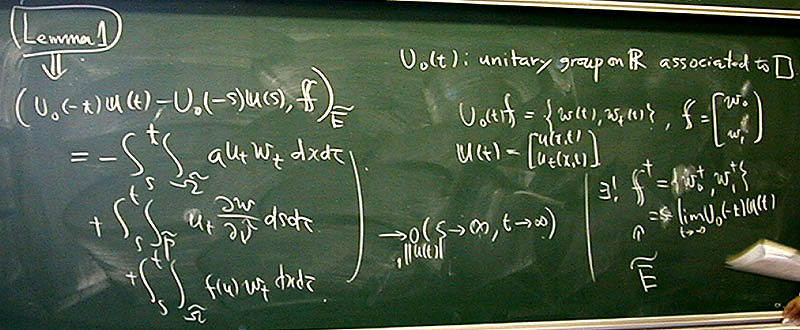 Lemma 1
⇓
(U₀(-t)u(t) - U₀(-s)u(s), f)_Ẽ
= -∫ₛᵗ∫_Ω̃ a u_t w_t dxdτ
+ ∫ₛᵗ∫_Γ̃ u_t ∂w/∂ν dsdτ
+ ∫ₛᵗ∫_Ω̃ f(u) w_t dxdτ
→ 0 (s → ∞, t → ∞)
‖u(t)‖
U₀(t): unitary group on ℝ associated to □
U₀(t)f = {w(t), w_t(t)}, f = [w₀ w₁]
u(t) = [u(x,t) u_t(x,t)]
∃! f⁺ = {w₀⁺, w₁⁺}
= s-lim_{t→∞} U₀(-t)u(t)
Ẽ